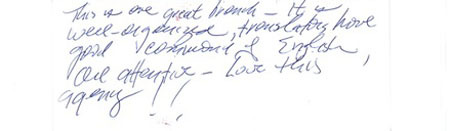 This is one great branch – It is
well-organized, translators have
good command of English,
are attentive – Love this
agency!!